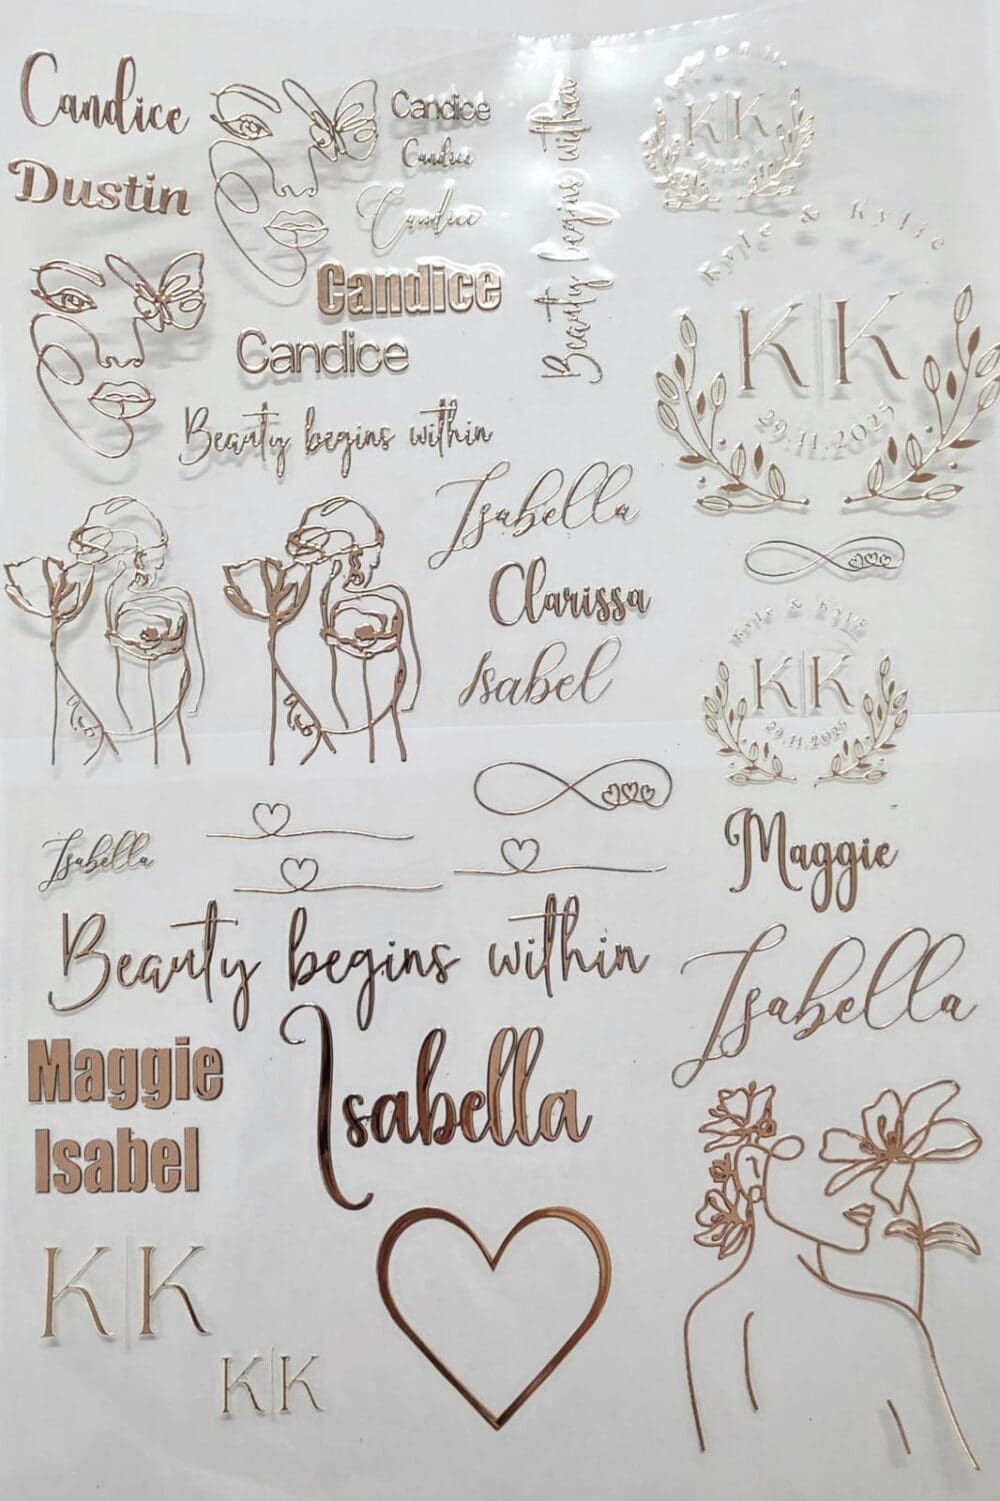 Candice
Dustin
Candice
Candice
Candice
Candice
Candice
Beauty begins within
Beauty begins within
K|K
Kyle & Kylie
K|K
29.11.2025
Isabella
Clarissa
Isabel
Kyle & Kylie
K|K
29.11.2025
Isabella
Maggie
Beauty begins within
Isabella
Maggie
Isabel
Isabella
K|K
K|K